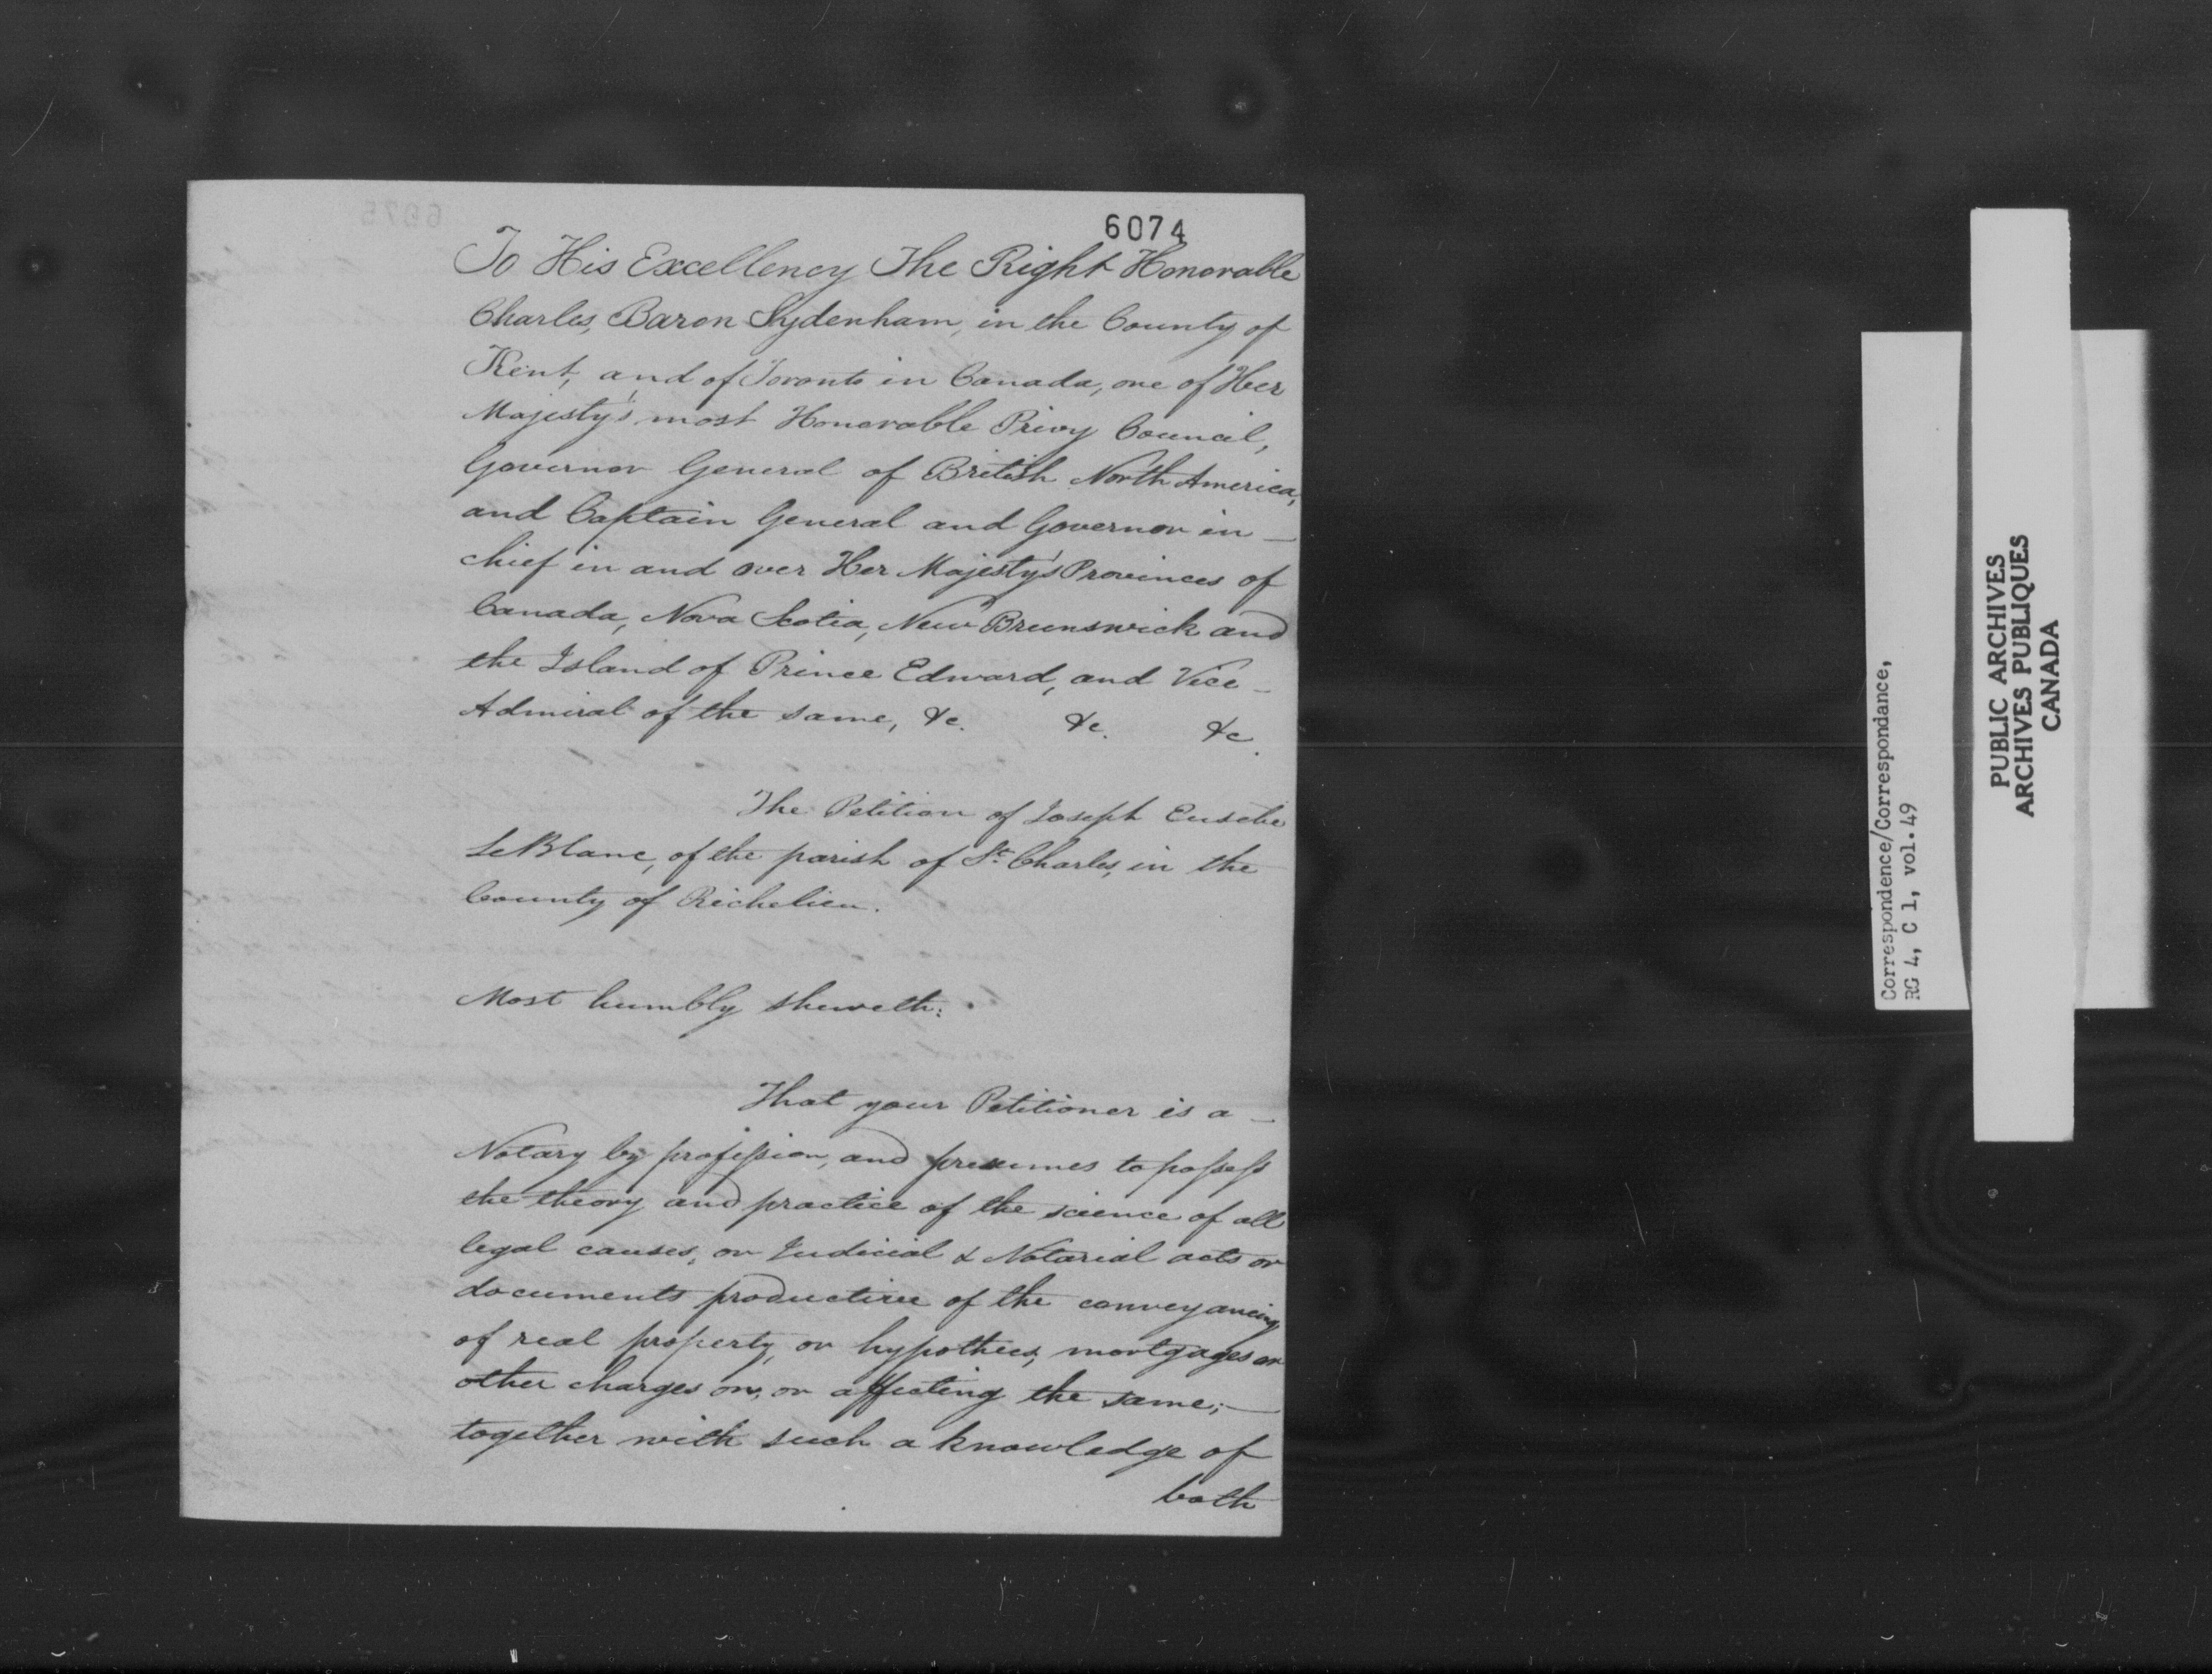 6074
To His Excellency The Right Honorable
Charles, Baron Sydenham, in the County of
Kent, and of Toronto in Canada, one of Her
Majesty's most Honorable Privy Council,
Governor General of British North America,
and Captain General and Governor in —
chief in and over Her Majesty's Provinces of
Canada, Nova Scotia, New Brunswick and
the Island of Prince Edward, and Vice —
Admiral of the same, &c. &c. &c.
The Petition of Joseph Eusebe
LeBlanc, of the parish of St. Charles, in the
County of Richelieu.
Most humbly sheweth:
That your Petitioner is a —
Notary by profession, and presumes to possess
the theory and practice of the science of all
legal causes, or Judicial & Notarial acts or
documents productive of the conveyancing
of real property, or hypothecs, mortgages or
other charges on, or affecting the same; —
together with such a knowledge of
both
6075
Correspondence/Correspondance,
RG 4, C 1, vol.49
PUBLIC ARCHIVES
ARCHIVES PUBLIQUES
CANADA